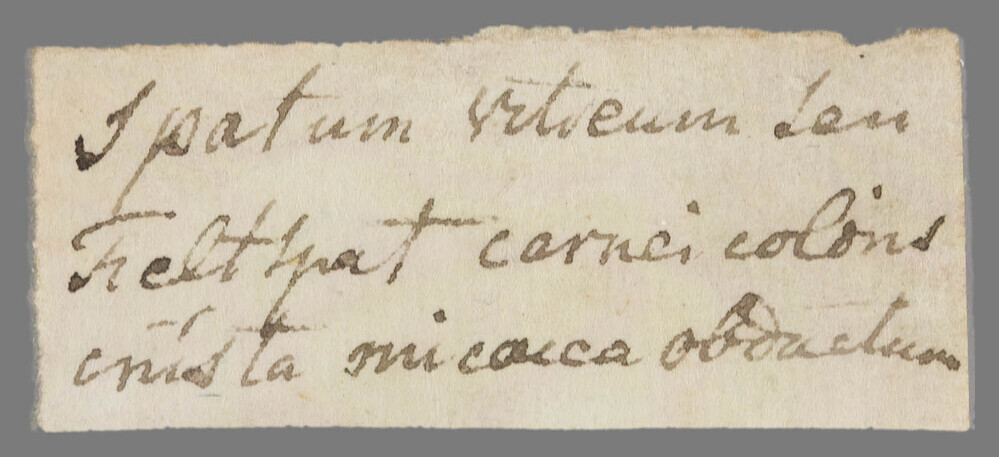 Spatum vitreum seu
Feltspat carnei coloris
crusta micacea obductum